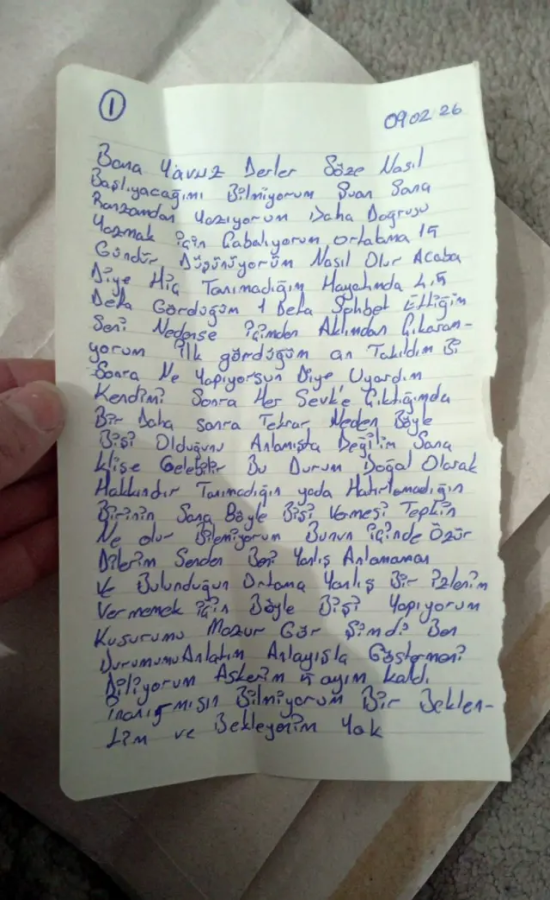 1
09.02.26
Bana Yavuz Derler Söze Nasıl
Başlıyacağımı Bilmiyorum Şuan Sana
Ranzamdan Yazıyorum Daha Doğrusu
Yazmak için Çabalıyorum ortlama 15
Gündür Düşünüyorum Nasıl Olur Acaba
Diye Hiç Tanımadığım Hayatımda 4,5
Defa Gördüğüm 1 Defa Sohbet Ettiğim
Seni Nedense içimden Aklımdan Çıkaram-
yorum ilk gördüğüm an Takıldım Bi
Sonra Ne Yapıyorsun Diye Uyardım
Kendimi Sonra Her Sevk'e Çıktığımda
Bir Daha sonra Tekrar Neden Böyle
Bişi Olduğunu Anlamışta Değilim Sana
klişe Gelebilir Bu Durum Doğal Olarak
Hakkındır Tanımadığın yada Hatırlamadığın
Birinin Sana Böyle Bişi Vermesi Tepkin
Ne olur Bilemiyorum Bunun içinde Özür
Dilerim Senden Beni Yanlış Anlamaman
ve Bulunduğun Ortama Yanlış Bir izlenim
Vermemek için Böyle Bişi Yapıyorum
Kusurumu Mazur Gör Şimdi Ben
Durumumu Anlatım Anlayışla Göstermeni
Diliyorum Askerim 5 ayım kaldı
inanırmısın Bilmiyorum Bir Beklen-
tim ve Bekleyenim Yok